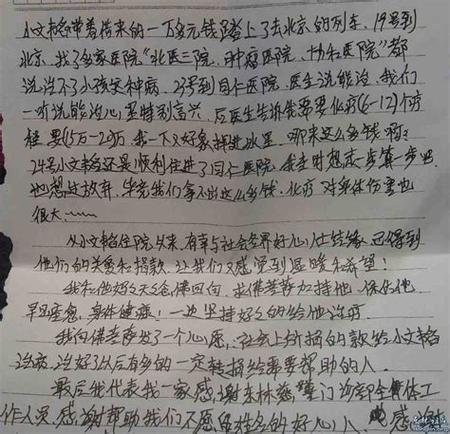 小文韬带着借来的一万多元钱踏上了去北京的列车，19号到
北京，找了多家医院“北医三院，肿瘤医院，协和医院”都
说治不了小孩这种病，23号到同仁医院，医生说能治，我们
一听说能治心里特别高兴，后医生告诉我需要化疗(6-12)个疗
程 要(15万-20万) 我一下又好象掉进冰里，哪来这么多钱啊：
24号小文韬还是顺利住进了同仁医院，我当时想走一步算一步吧
也想过放弃，毕竟我们拿不出这么多钱，化疗对身体伤害也
很大……
从小文韬住院以来，有幸与社会各界好心人士结缘，已得到
他们的关爱和捐款，让我们又感觉到温暖和希望！
我和他妈天天念佛回向，求佛菩萨加持他，保佑他
早日痊愈，身体健康！一边坚持好好的给他治疗
我向佛菩萨发了一个心愿，社会上所捐的款给小文韬
治病，治好了以后有多的一定转捐给需要帮助的人。
最后我代表我一家感谢东林慈 门诊部全体工
作人员，感谢帮助我们不愿留姓名的好心人， 感谢